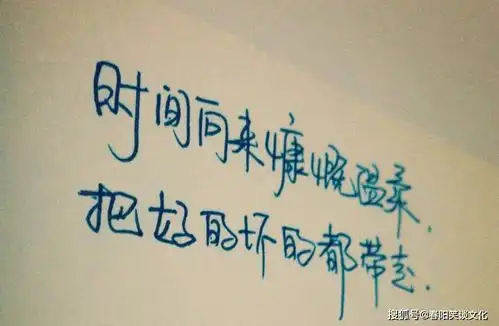 时间向来慷慨温柔.
把好的坏的都带走.
搜狐号@春阳笑谈文化